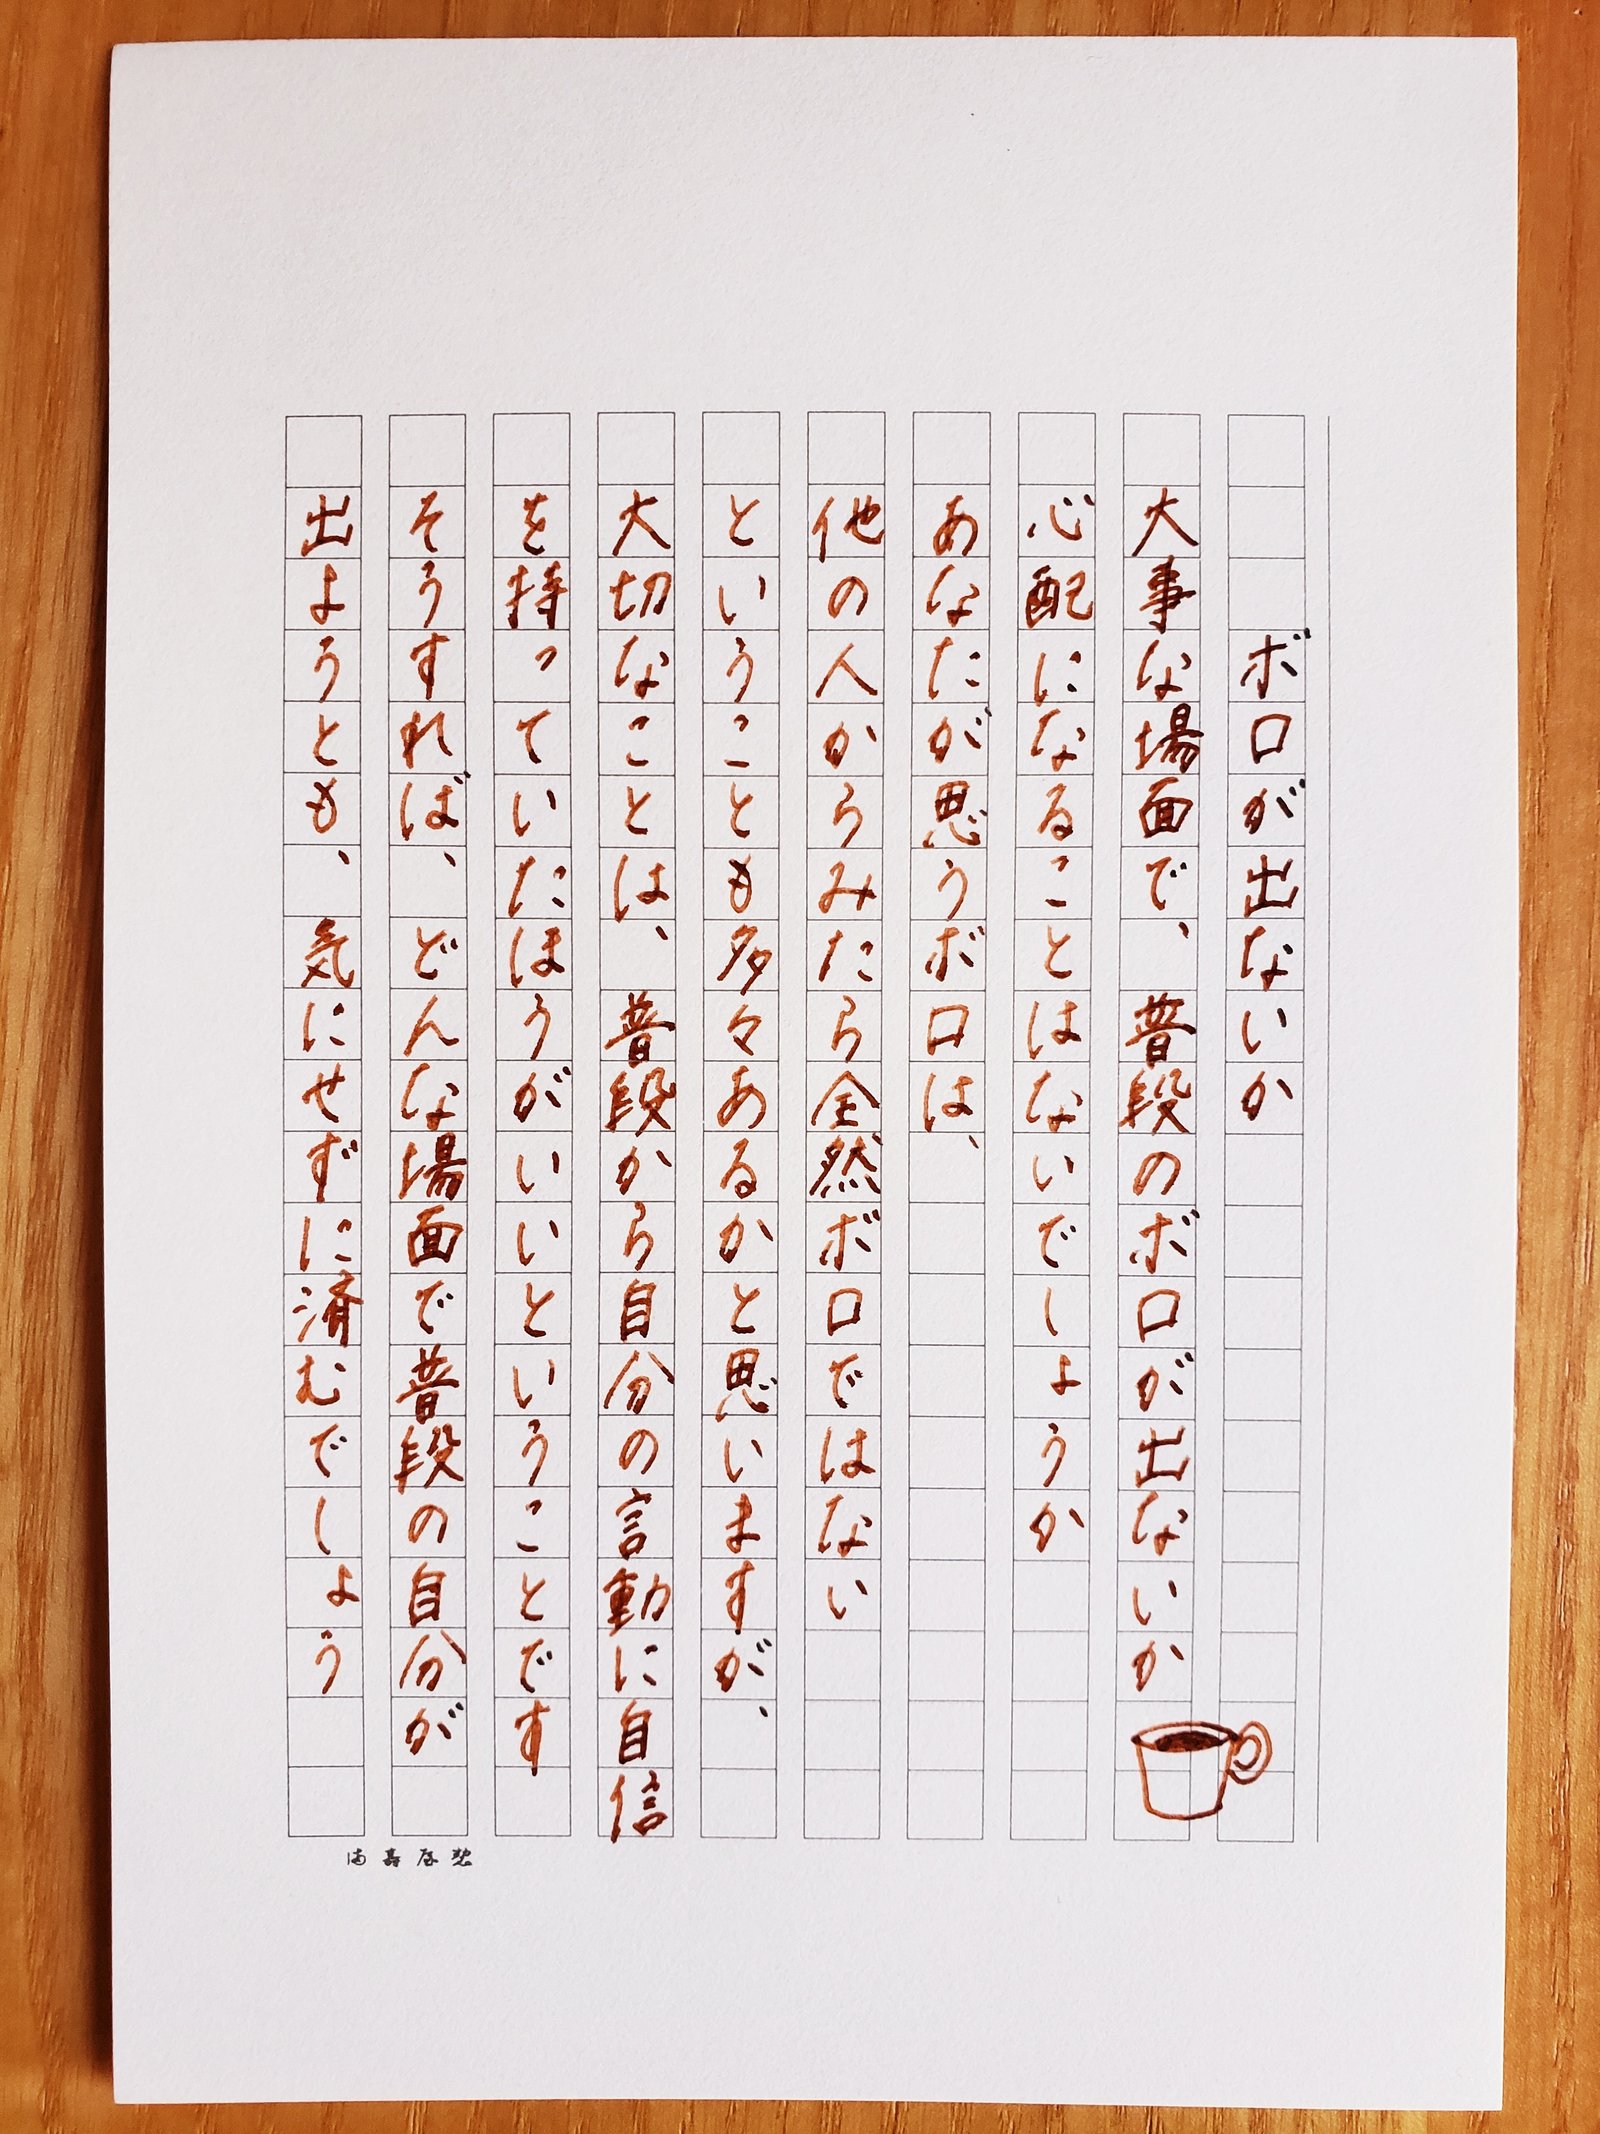 ボロが出ないか
大事な場面で、普段のボロが出ないか
心配になることはないでしょうか
あなたが思うボロは、
他の人からみたら全然ボロではない
ということも多々あるかと思いますが、
大切なことは、普段から自分の言動に自信
を持っていたほうがいいということです
そうすれば、どんな場面で普段の自分が
出ようとも、気にせずに済むでしょう